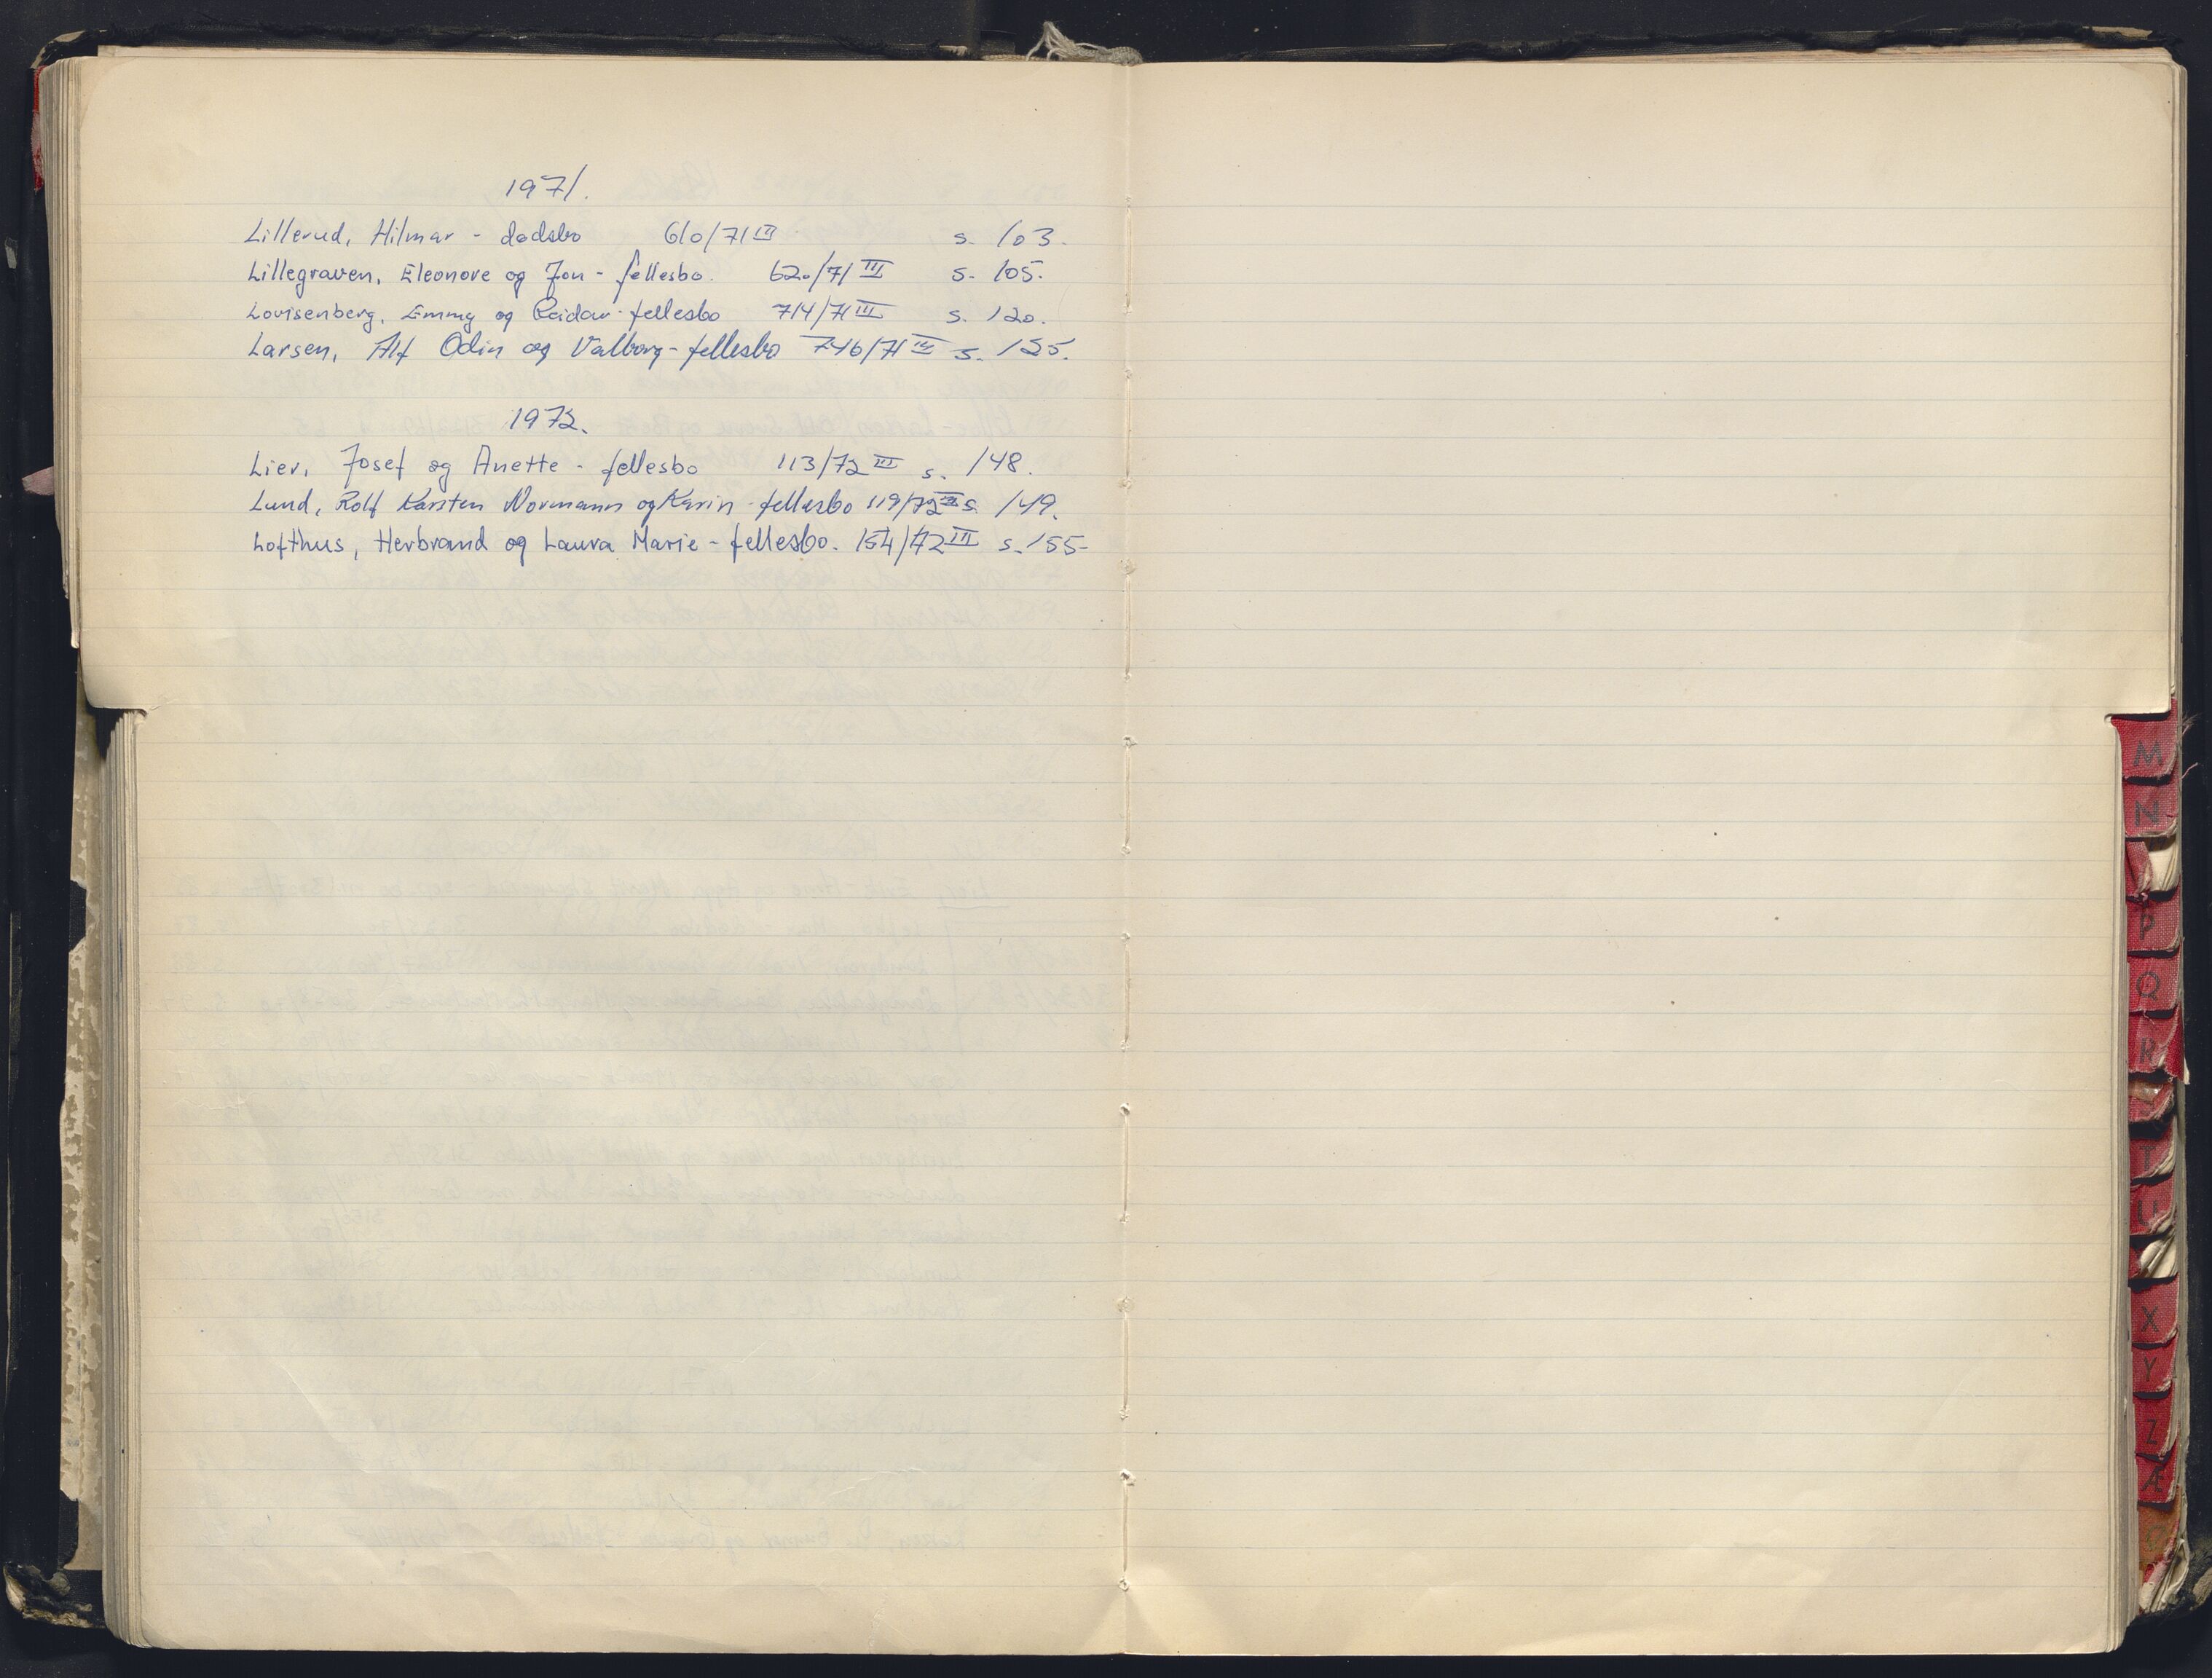 1971.
Lillerud, Hilmar - dødsbo 610/71 III s. 103.
Lillegraven, Eleonore og Jon - fellesbo. 620/71 III s. 105.
Lovisenberg, Emmy og Reidar - fellesbo 714/71 III s. 120.
Larsen, Alf Odin og Valborg - fellesbo 746/71 III s. 125.
1972.
Lier, Josef og Anette - fellesbo 113/72 III s. 148.
Lund, Rolf Karsten Normann og Karin - fellesbo 119/72 III s. 149.
Lofthus, Herbrand og Laura Marie - fellesbo. 154/72 III s. 155-
M
N
P
Q
R
T
U
X
Y
Z
Æ
Ø